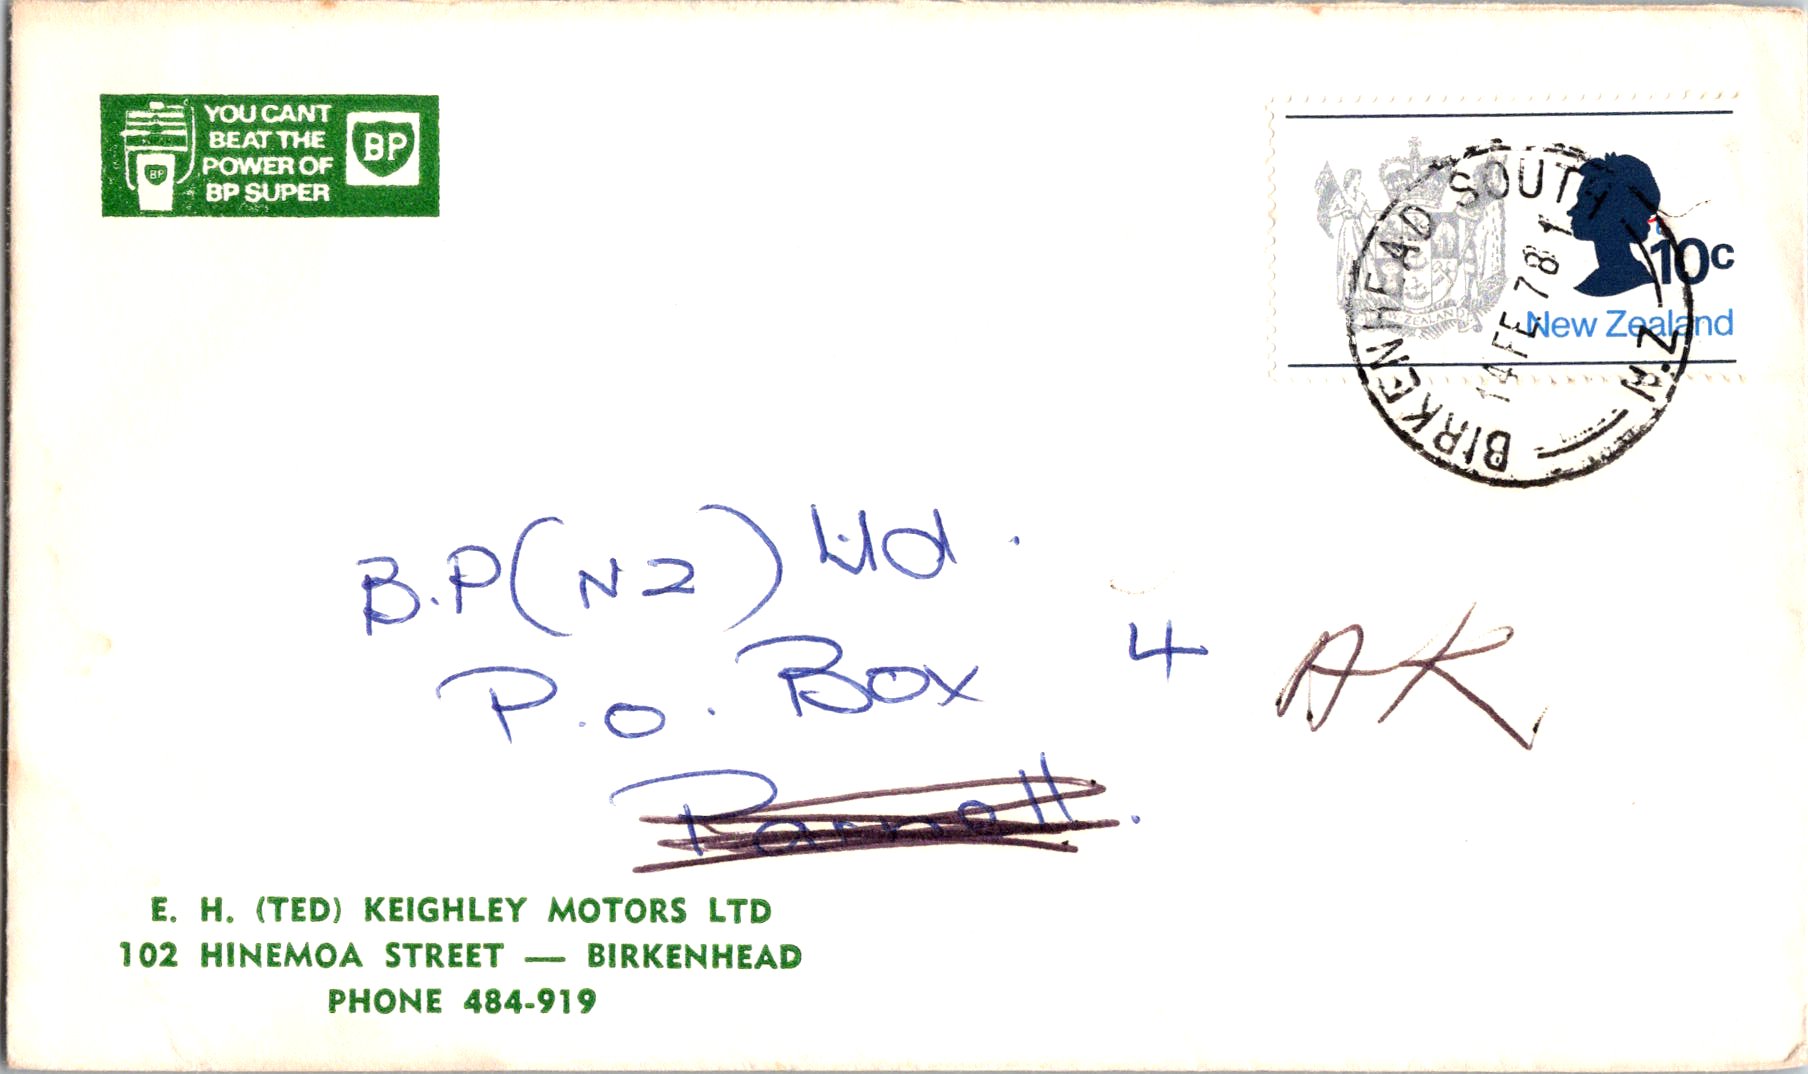 YOU CANT
BEAT THE
POWER OF
BP SUPER
BP
BP
10c
New Zealand
NEW ZEALAND
BIRKENHEAD SOUTH N.Z
14 FE 78 1
B.P (NZ) Ltd.
P.O. Box 4
AK
Parnell.
E. H. (TED) KEIGHLEY MOTORS LTD
102 HINEMOA STREET — BIRKENHEAD
PHONE 484-919